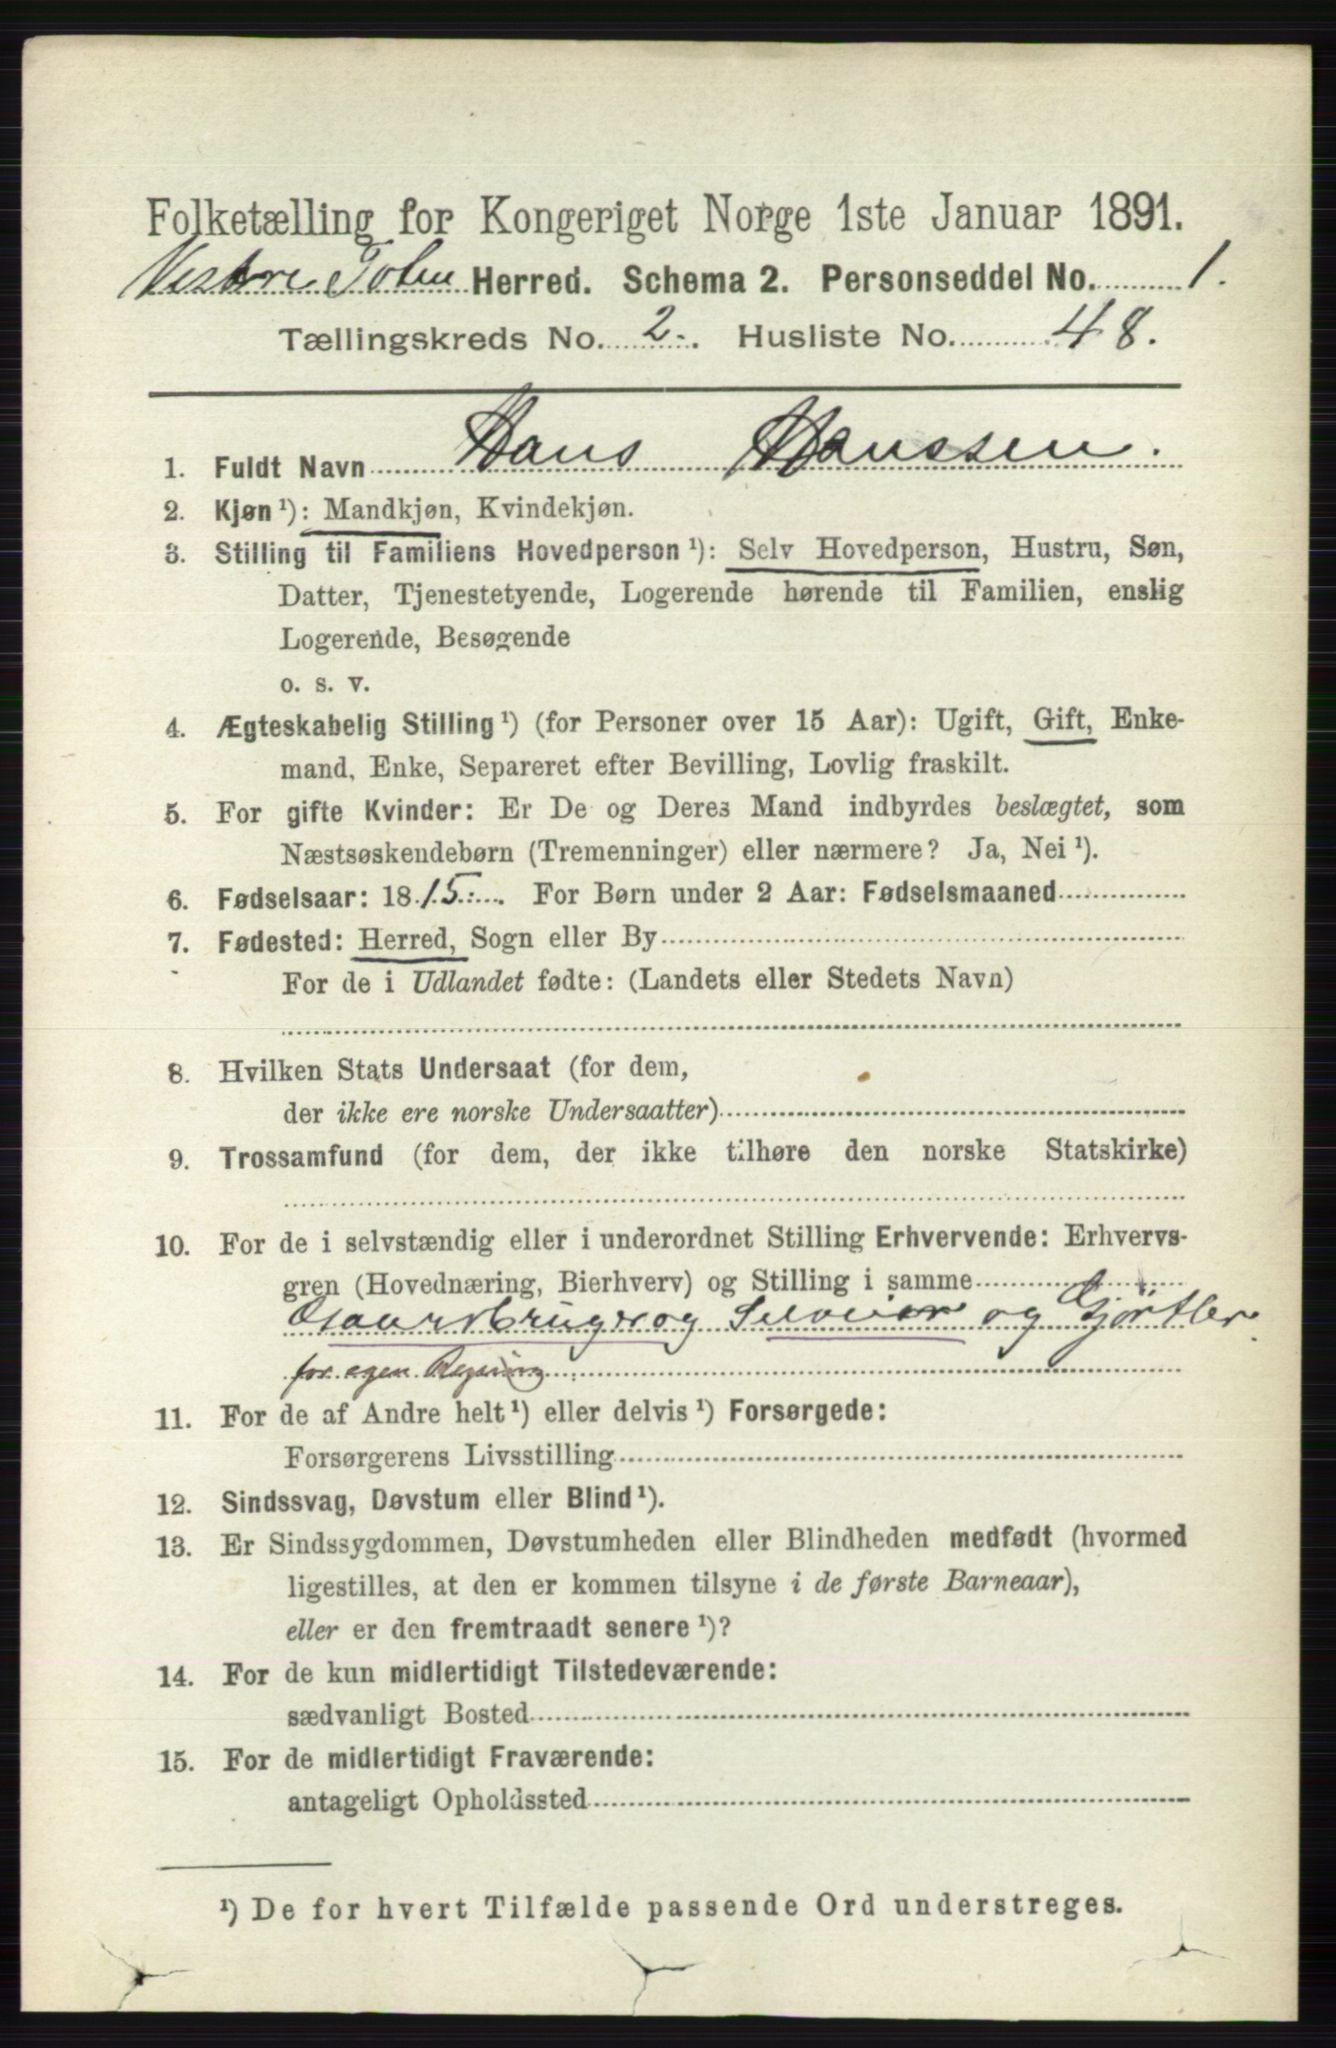 Folketælling for Kongeriget Norge 1ste Januar 1891.
Vestre Toten Herred. Schema 2. Personseddel No. 1.
Tællingskreds No. 2. Husliste No. 48.
1. Fuldt Navn Hans Hanssen.
2. Kjøn¹): Mandkjøn, Kvindekjøn.
3. Stilling til Familiens Hovedperson¹): Selv Hovedperson, Hustru, Søn,
Datter, Tjenestetyende, Logerende hørende til Familien, enslig
Logerende, Besøgende
o. s. v.
4. Ægteskabelig Stilling¹) (for Personer over 15 Aar): Ugift, Gift, Enke-
mand, Enke, Separeret efter Bevilling, Lovlig fraskilt.
5. For gifte Kvinder: Er De og Deres Mand indbyrdes beslægtet, som
Næstsøskendebørn (Tremenninger) eller nærmere? Ja, Nei¹).
6. Fødselsaar: 1815. For Børn under 2 Aar: Fødselsmaaned
7. Fødested: Herred, Sogn eller By
For de i Udlandet fødte: (Landets eller Stedets Navn)
8. Hvilken Stats Undersaat (for dem,
der ikke ere norske Undersaatter)
9. Trossamfund (for dem, der ikke tilhøre den norske Statskirke)
10. For de i selvstændig eller i underordnet Stilling Erhvervende: Erhvervs-
gren (Hovednæring, Bierhverv) og Stilling i samme
Gaardbruger og Selveier og Gjørtler
for egen Regning
11. For de af Andre helt¹) eller delvis¹) Forsørgede:
Forsørgerens Livsstilling
12. Sindssvag, Døvstum eller Blind¹).
13. Er Sindssygdommen, Døvstumheden eller Blindheden medfødt (hvormed
ligestilles, at den er kommen tilsyne i de første Barneaar),
eller er den fremtraadt senere¹)?
14. For de kun midlertidigt Tilstedeværende:
sædvanligt Bosted
15. For de midlertidigt Fraværende:
antageligt Opholdssted
¹) De for hvert Tilfælde passende Ord understreges.